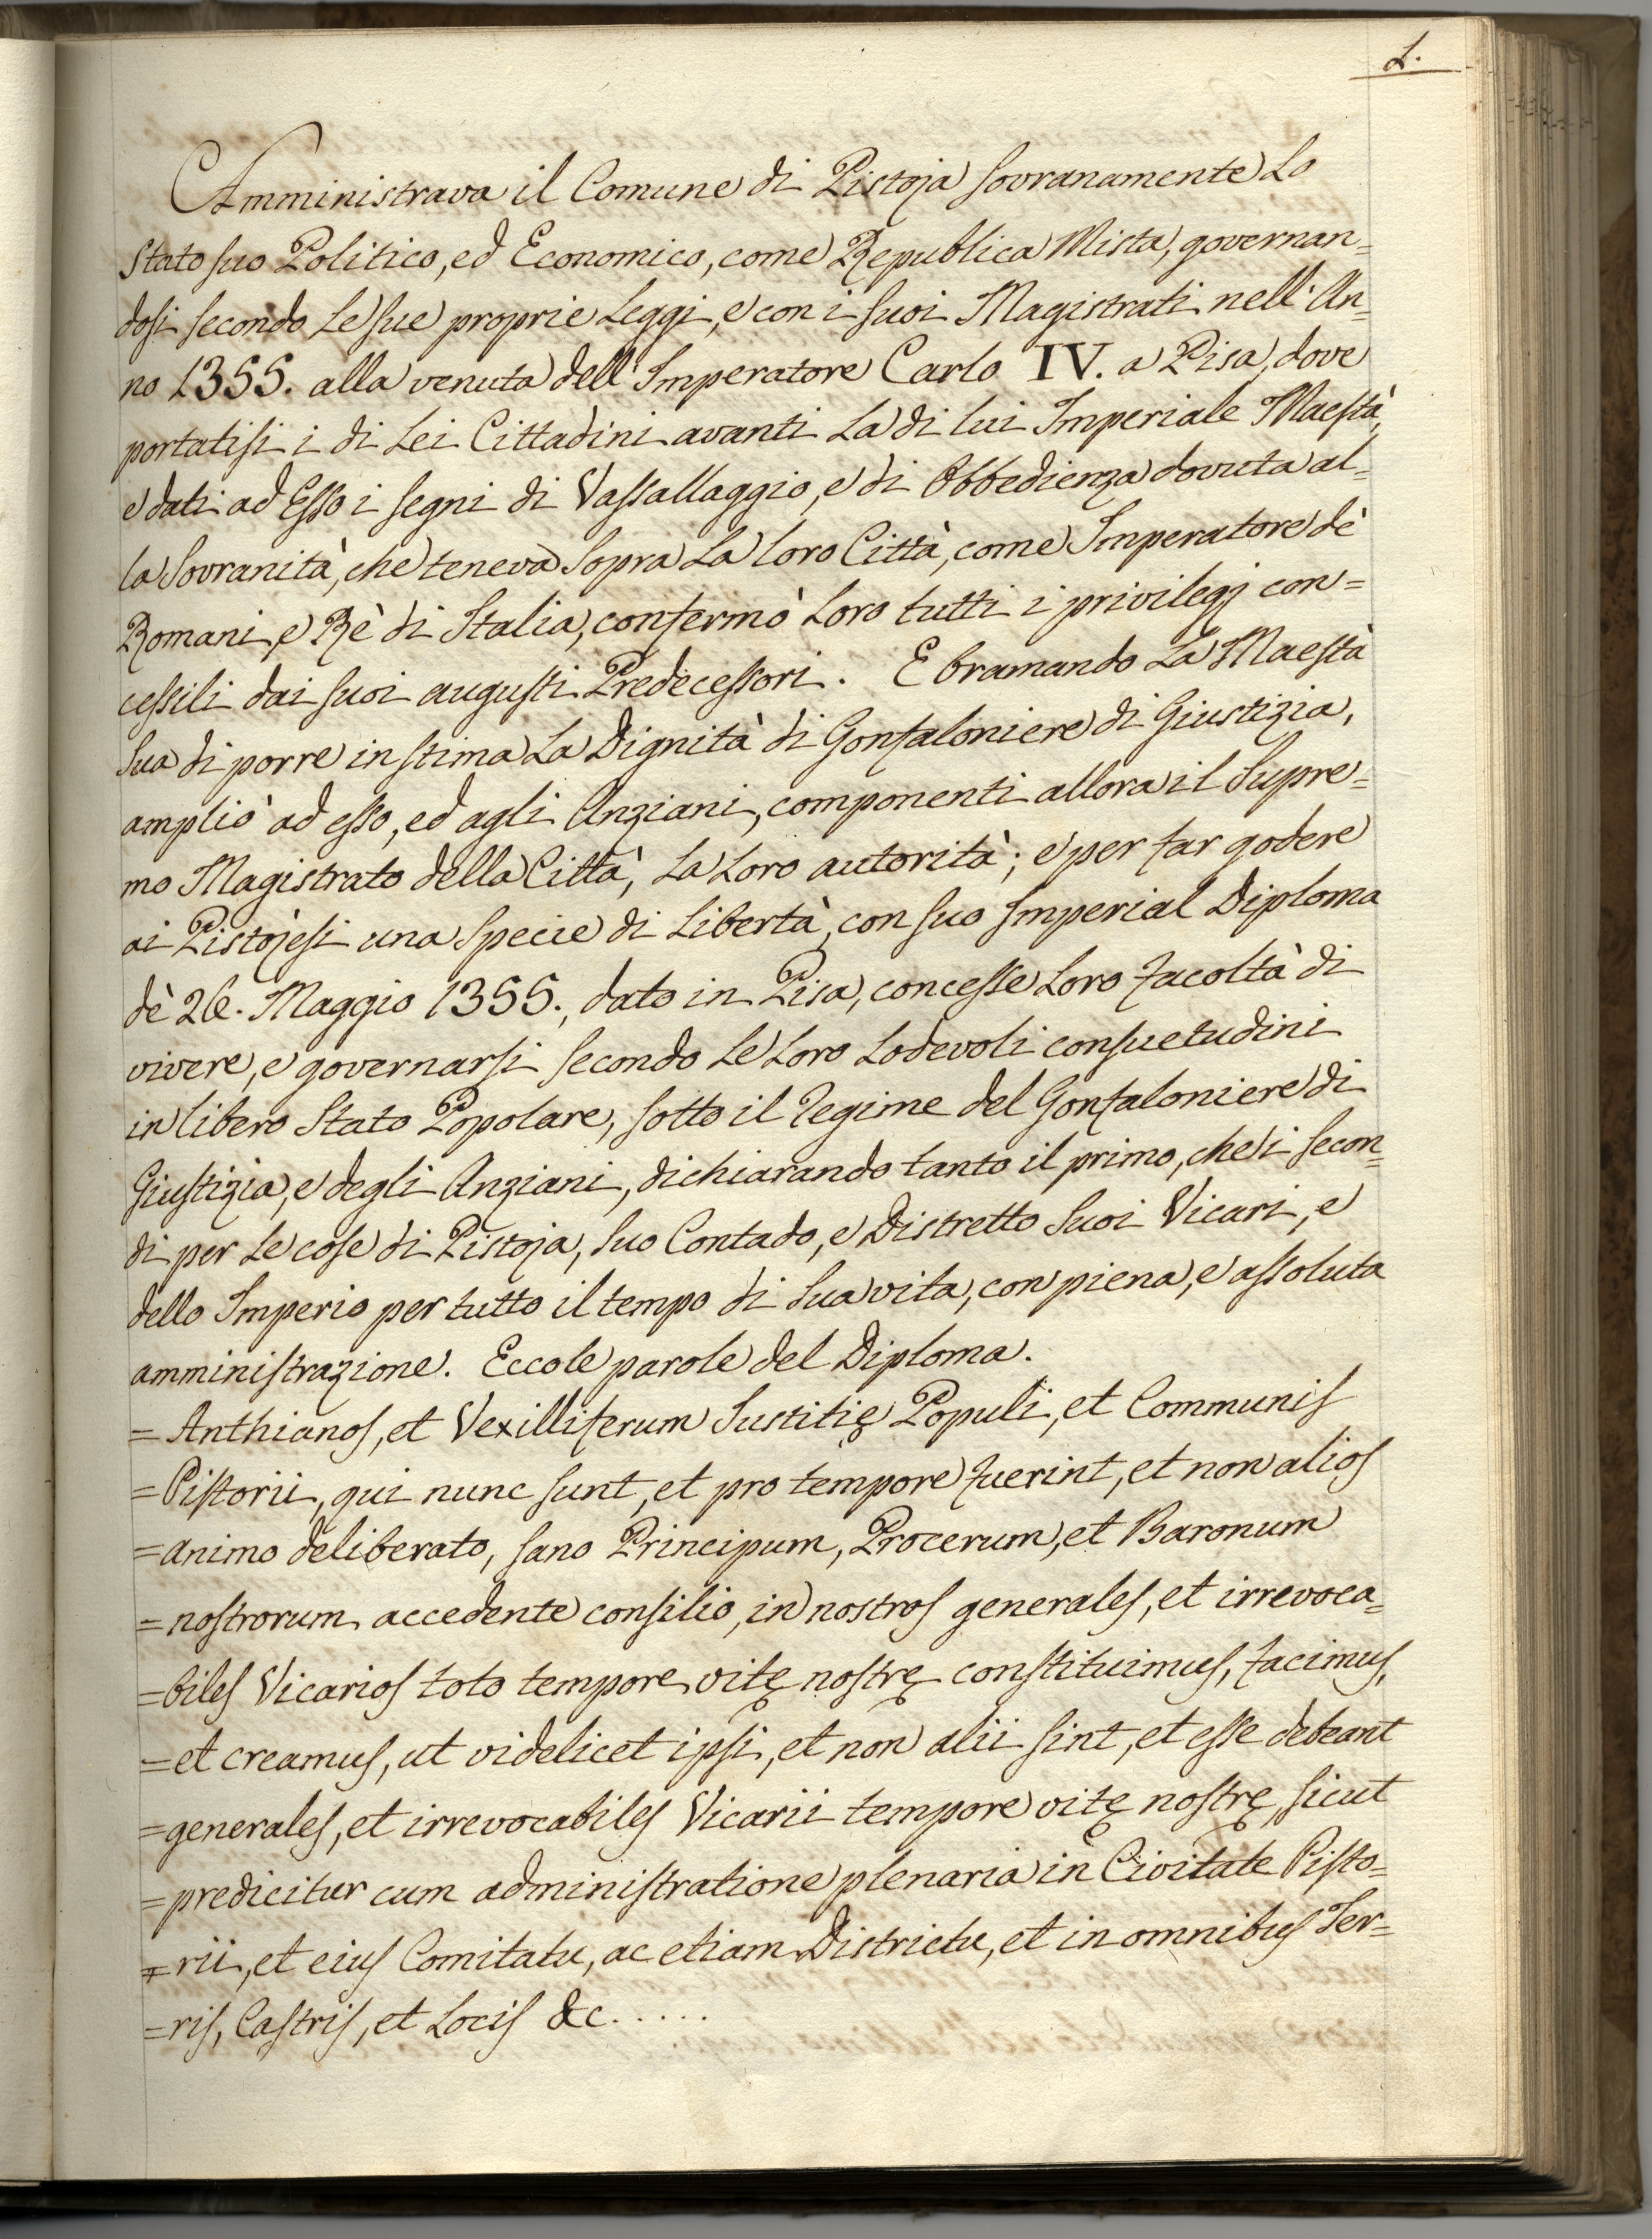 1.
Amministrava il Comune di Pistoja sovranamente lo
Stato suo Politico, ed Economico, come Republica Mista, governan=
dosi secondo le sue proprie Leggi, e con i suoi Magistrati nell'An=
no 1355. alla venuta dell'Imperatore Carlo IV. a Pisa, dove
portatisi i di Lei Cittadini avanti la di lui Imperiale Maestà,
e dati ad Esso i segni di Vassallaggio, e di Obbedienza dovuta al=
la Sovranità, che teneva sopra la loro Città, come Imperatore dè
Romani, e Rè di Italia, confermò loro tutti i privilegj con=
cessili dai suoi augusti Predecessori. E bramando la Maestà
Sua di porre in stima la Dignità di Gonfaloniere di Giustizia,
ampliò ad esso, ed agli Anziani, componenti allora il Supre=
mo Magistrato della Città, la loro autorità; e per far godere
ai Pistojesi una specie di Libertà, con suo Imperial Diploma
dè 26. Maggio 1355., dato in Pisa, concesse loro facoltà di
vivere, e governarsi secondo le loro lodevoli consuetudini
in libero Stato Popolare, sotto il Regime del Gonfaloniere di
Giustizia, e degli Anziani, dichiarando tanto il primo, che i secon=
di per le cose di Pistoja, suo Contado, e Distretto suoi Vicari, e
dello Imperio per tutto il tempo di sua vita, con piena, e assoluta
amministrazione. Ecco le parole del Diploma.
=Anthianos, et Vexilliferum Iustitię Populi, et Communis
=Pistorii, qui nunc sunt, et pro tempore fuerint, et non alios
=animo deliberato, sano Principum, Procerum, et Baronum
=nostrorum accedente consilio, in nostros generales, et irrevoca=
=biles Vicarios toto tempore vitę nostrę constituimus, facimus,
=et creamus, ut videlicet ipsi, et non alii sint, et esse debeant
=generales, et irrevocabiles Vicarii tempore vitę nostrę sicut
=predicitur cum administratione plenaria in Civitate Pisto=
=rii, et eius Comitatu, ac etiam Districtu, et in omnibus Ter=
=ris, Castris, et Locis &c.....